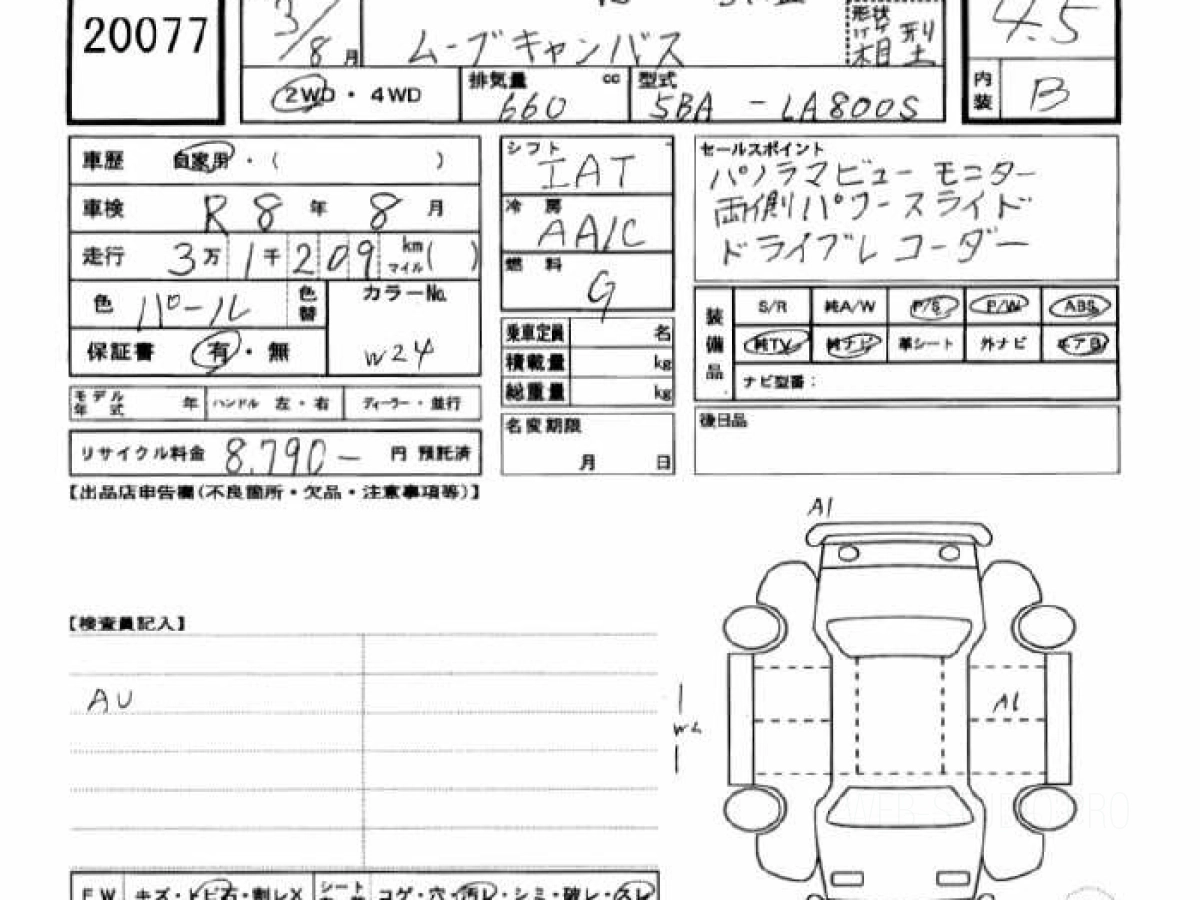 20077
3/8月
ムーブキャンバス
形状
箱型
4.5
2WD・4WD
排気量 cc 660
型式 5BA - LA800S
内装 B
車歴 自家用・( )
車検 R8年 8月
走行 3万1千209 km マイル( )
色 パール 色替
カラーNo. W24
保証書 有・無
モデル年式 年 ハンドル 左・右 ディーラー・並行
リサイクル料金 8,790- 円 預託済
シフト IAT
冷房 AA/C
燃料 G
乗車定員 名
積載量 kg
総重量 kg
名変期限
月 日
セールスポイント
パノラマビューモニター
両側パワースライド
ドライブレコーダー
装備品
S/R 純A/W P/S P/W ABS
純TV 純ナビ 革シート 外ナビ エアB
ナビ型番:
後日品
【出品店申告欄(不良箇所・欠品・注意事項等)】
A1
【検査員記入】
AU
A1
FW キズ・トビ石・割レX シート コゲ・穴・汚レ・シミ・破レ・スレ